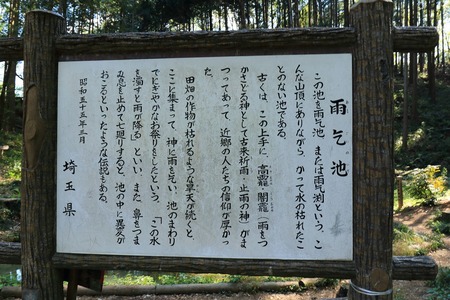 雨乞池
この池を雨乞池、または雨乞渕という。こ
んな山頂にありながら、かつて水の枯れたこ
とのない池である。
古くは、この上手に、高龗・闇龗(雨をつ
かさどる神として古来祈雨・止雨の神)がま
つってあって、近郷の人たちの信仰が厚かっ
た。
田畑の作物が枯れるような旱天が続くと、
ここに集まって、神に雨を乞い、池のまわり
でにぎやかなお祭りをしたという。「この水
を濁すと雨が降る」といい、また、鼻をつま
み息を止めて七廻りすると、池の中に異変が
おこるといったような伝説もある。
昭和五十五年三月
埼玉県